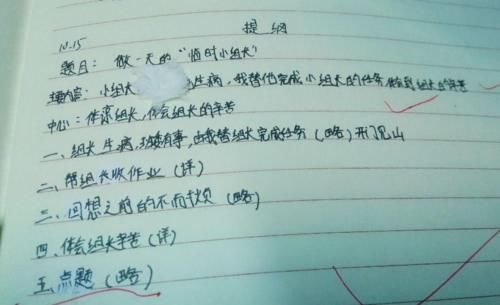 提纲
10.15
题目：做一天的“临时小组长”
主要内容：小组长 生病，我替他完成小组长的任务，体会到组长的辛苦
中心：体谅组长，体会组长的辛苦
一、组长生病，有事，由我替组长完成任务（略）开门见山
二、帮组长收作业（详）
三、回想之前的不耐烦（略）
四、体会组长辛苦（详）
五、点题（略）